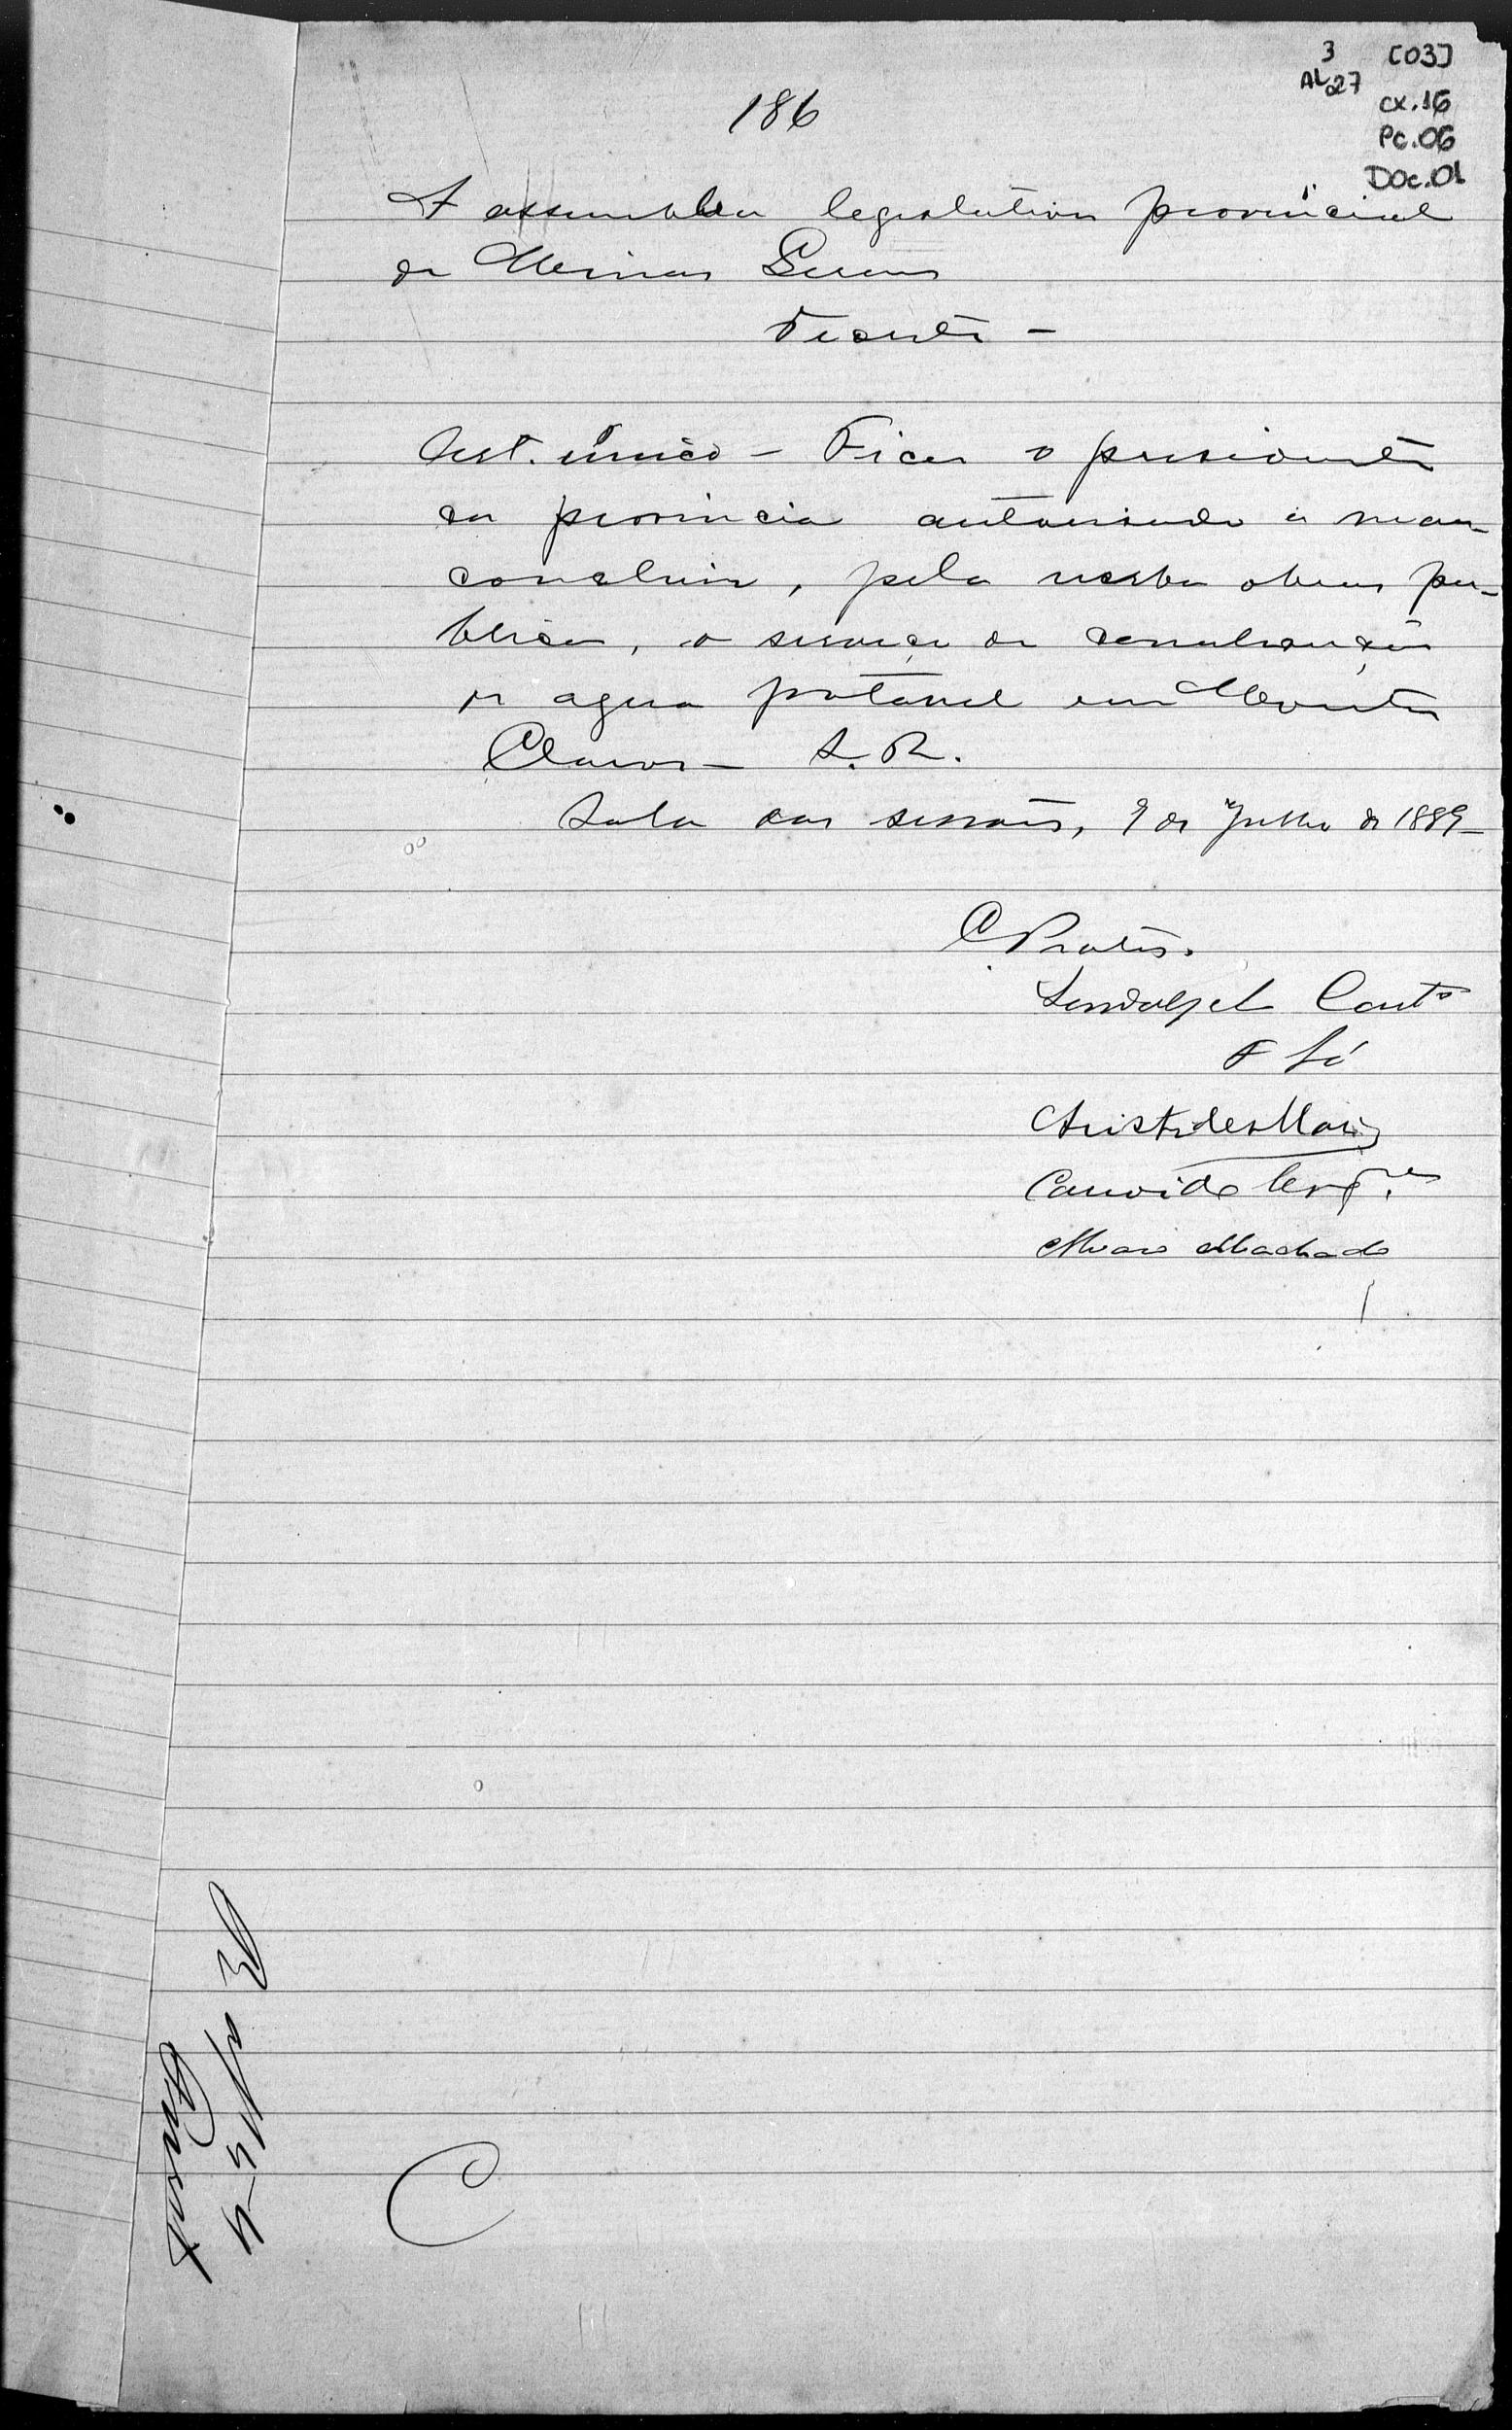 3 [03]
AL 27
cx.16
Pc.06
Doc.01
186
A assemblea legislativa provincial
de Minas Geraes
Decreta -
Art. único - Fica o presidente
da provincia autorisado a man-
concluir, pela verba obras pu-
blicas, o serviço de canalisação
de agua potavel em Montes
Claros - S. R.
Sala das sessões, 9 de Julho de 1889 -
C. Prates.
Lindolpho Caet.o
F Sá
Aristides Maia
Candido Cerq.ra
Alvaro Machado
C